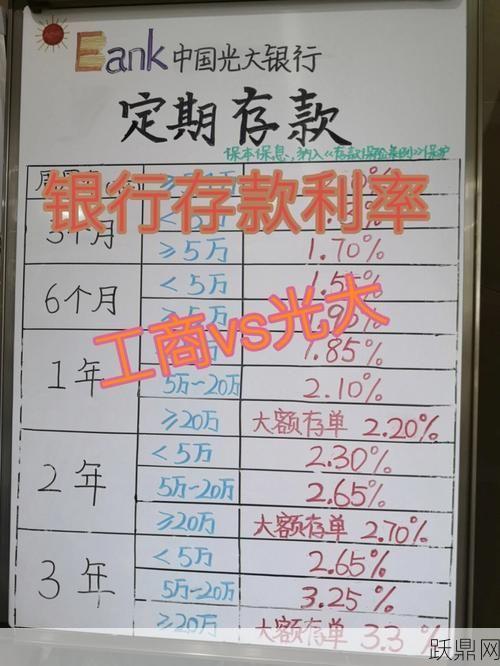 Bank 中国光大银行
定期存款
保本保息，纳入《存款保险条例》保护
银行存款利率
3个月
≥5万 1.70%
6个月 <5万 1.55%
工商vs光大
1年 1.85%
5万-20万 2.10%
≥20万 大额存单 2.20%
2年 <5万 2.30%
5万-20万 2.65%
≥20万 大额存单 2.70%
3年 <5万 2.65%
5万-20万 3.25%
≥20万 大额存单 3.3%
跃鼎网